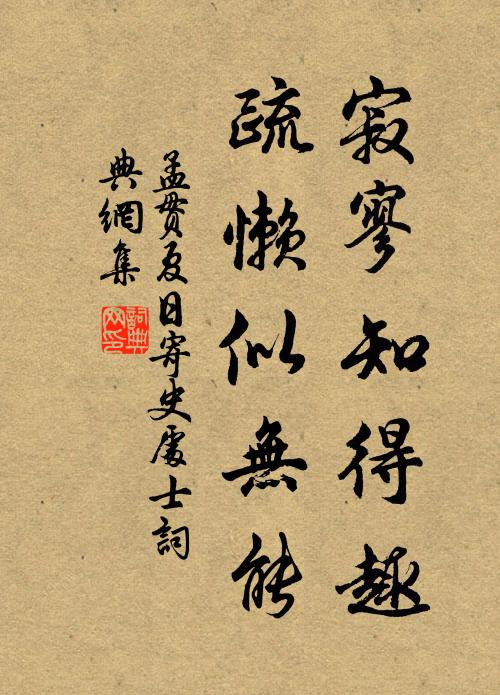 寂寥知得趣
疏懶似無能
孟貫夏日寄史處士詞
典網集
詞典網印